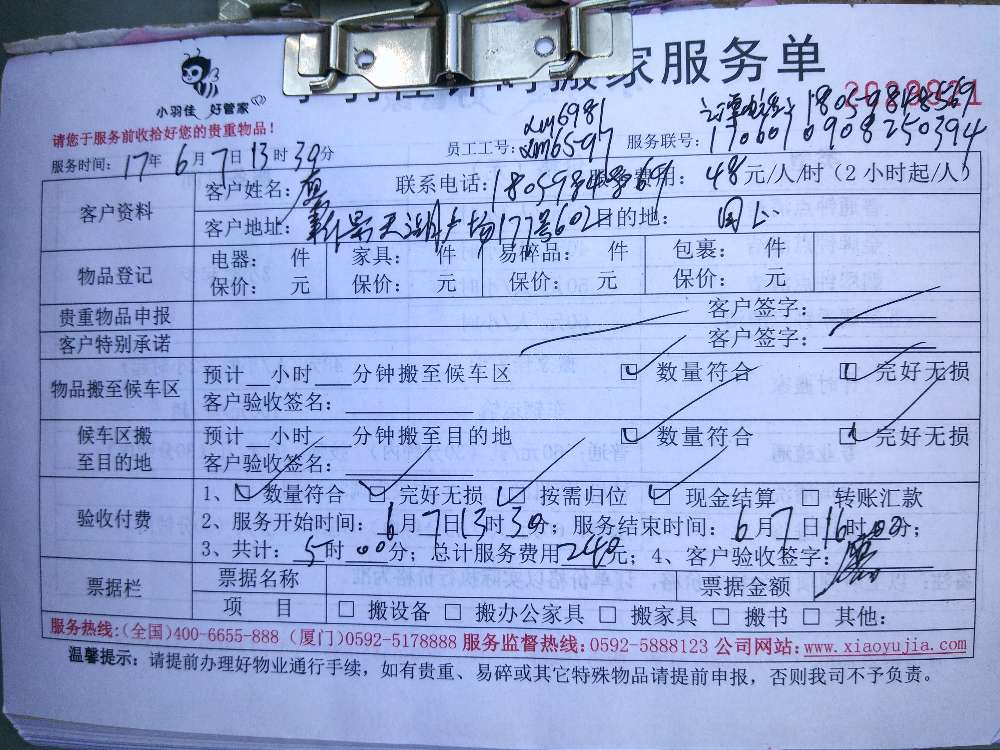 家服务单
小羽佳 好管家
请您于服务前收拾好您的贵重物品!
服务时间: 17年 6月 7日 13时 30分
员工工号: xm6981 xm6597 服务联号: 1706010908250394
客户资料
客户姓名: 联系电话: 费用: 48元/人/时（2小时起/人）
客户地址: 天湖广场177号602 目的地: 同上
物品登记
电器: 件 家具: 件 易碎品: 件 包裹: 件
保价: 元 保价: 元 保价: 元 保价: 元
贵重物品申报 客户签字:
客户特别承诺 客户签字:
物品搬至候车区
预计__小时___分钟搬至候车区 数量符合 完好无损
客户验收签名:
候车区搬至目的地
预计__小时___分钟搬至目的地 数量符合 完好无损
客户验收签名:
验收付费
1、 数量符合 完好无损 按需归位 现金结算 □ 转账汇款
2、服务开始时间: 6月7日13时30分; 服务结束时间: 6月7日16时00分;
3、共计: 5时00分; 总计服务费用240元; 4、客户验收签字:
票据栏
票据名称 票据金额
项 目 □ 搬设备 □ 搬办公家具 □ 搬家具 □ 搬书 □ 其他:
服务热线:(全国)400-6655-888 (厦门)0592-5178888 服务监督热线:0592-5888123 公司网站:www.xiaoyujia.com
温馨提示: 请提前办理好物业通行手续，如有贵重、易碎或其它特殊物品请提前申报，否则我司不予负责。